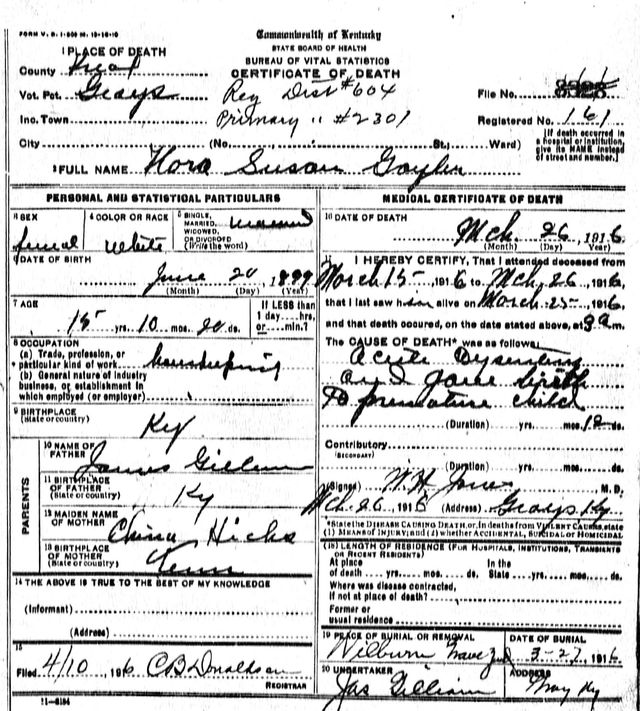 FORM V. S. 1-
Commonwealth of Kentucky
STATE BOARD OF HEALTH
BUREAU OF VITAL STATISTICS
CERTIFICATE OF DEATH
1 PLACE OF DEATH
County
Vot. Pct. Grays Reg Dist #604 File No.
Inc. Town Primary " #2301 Registered No. 161
City (No. St.; Ward)
[If death occurred in a hospital or institution, give its NAME instead of street and number.]
2 FULL NAME Flora Susan Gaylor
PERSONAL AND STATISTICAL PARTICULARS
3 SEX femal
4 COLOR OR RACE White
5 SINGLE, MARRIED, WIDOWED, OR DIVORCED (Write the word) Married
6 DATE OF BIRTH
June 20 1899
(Month) (Day) (Year)
7 AGE
15 yrs. 10 mos. 20 ds.
If LESS than 1 day....hrs, or....min.?
8 OCCUPATION
(a) Trade, profession, or particular kind of work housekeeping
(b) General nature of industry business, or establishment in which employed (or employer)
9 BIRTHPLACE
(State or country) Ky
PARENTS
10 NAME OF FATHER James Gilliam
11 BIRTHPLACE OF FATHER (State or country) Ky
12 MAIDEN NAME OF MOTHER China Hicks
13 BIRTHPLACE OF MOTHER (State or country) Tenn
14 THE ABOVE IS TRUE TO THE BEST OF MY KNOWLEDGE
(Informant)
(Address)
15
Filed 4/10 1916 C B Donaldson
REGISTRAR
11-6184
MEDICAL CERTIFICATE OF DEATH
16 DATE OF DEATH
Mch. 26, 1916
(Month) (Day) (Year)
17 I HEREBY CERTIFY, That I attended deceased from
March 15 1916 to Mch. 26 1916
that I last saw h er alive on March 25 1916
and that death occured, on the date stated above, at 3 a m.
The CAUSE OF DEATH* was as follows:
Acute Dysentery
and gave birth
to premature child
(Duration) yrs. mos. 12 ds.
Contributory
(SECONDARY)
(Duration) yrs. mos. ds.
(Signed) W. H. Jones M. D.
Mch. 26 1916 (Address) Grays, Ky
*State the DISEASE CAUSING DEATH, or, in deaths from VIOLENT CAUSES, state (1) MEANS OF INJURY; and (2) whether ACCIDENTAL, SUICIDAL or HOMICIDAL
(18) LENGTH OF RESIDENCE (FOR HOSPITALS, INSTITUTIONS, TRANSIENTS OR RECENT RESIDENTS)
At place of death yrs. mos. ds. In the State yrs. mos. ds.
Where was disease contracted, If not at place of death?
Former or usual residence
19 PLACE OF BURIAL OR REMOVAL Wilburn
DATE OF BURIAL 3-27, 1916
20 UNDERTAKER Jas Gilliam
ADDRESS Ky